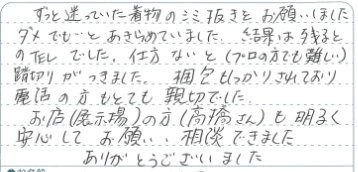 ずっと迷っていた着物のシミ抜きをお願いしました
ダメでも…とあきらめていました。結果は残ると
のTELでした。仕方ないと(プロの方でも難しい)
踏切りがつきました。梱包もしっかりされており
電話の方もとても親切でした。
お店(展示場)の方(高橋さん)も明るく
安心してお願い、相談できました
ありがとうございました